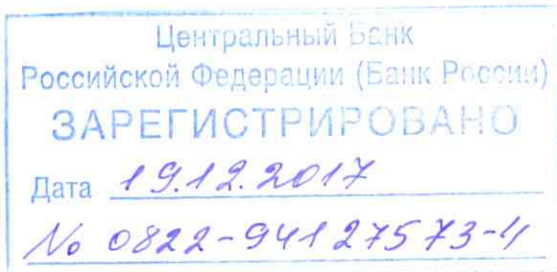 Центральный Банк
Российской Федерации (Банк России)
ЗАРЕГИСТРИРОВАНО
Дата 19.12.2017
№ 0822-94127573-4